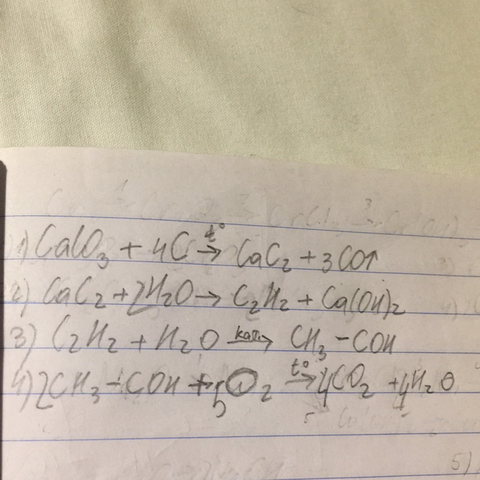 1) CaCO₃ + 4C t°→ CaC₂ + 3CO↑
2) CaC₂ + 2H₂O → C₂H₂ + Ca(OH)₂
3) C₂H₂ + H₂O кат.→ CH₃ - COH
4) 2CH₃ - COH + 5O₂ t°→ 4CO₂ + 4H₂O
5)